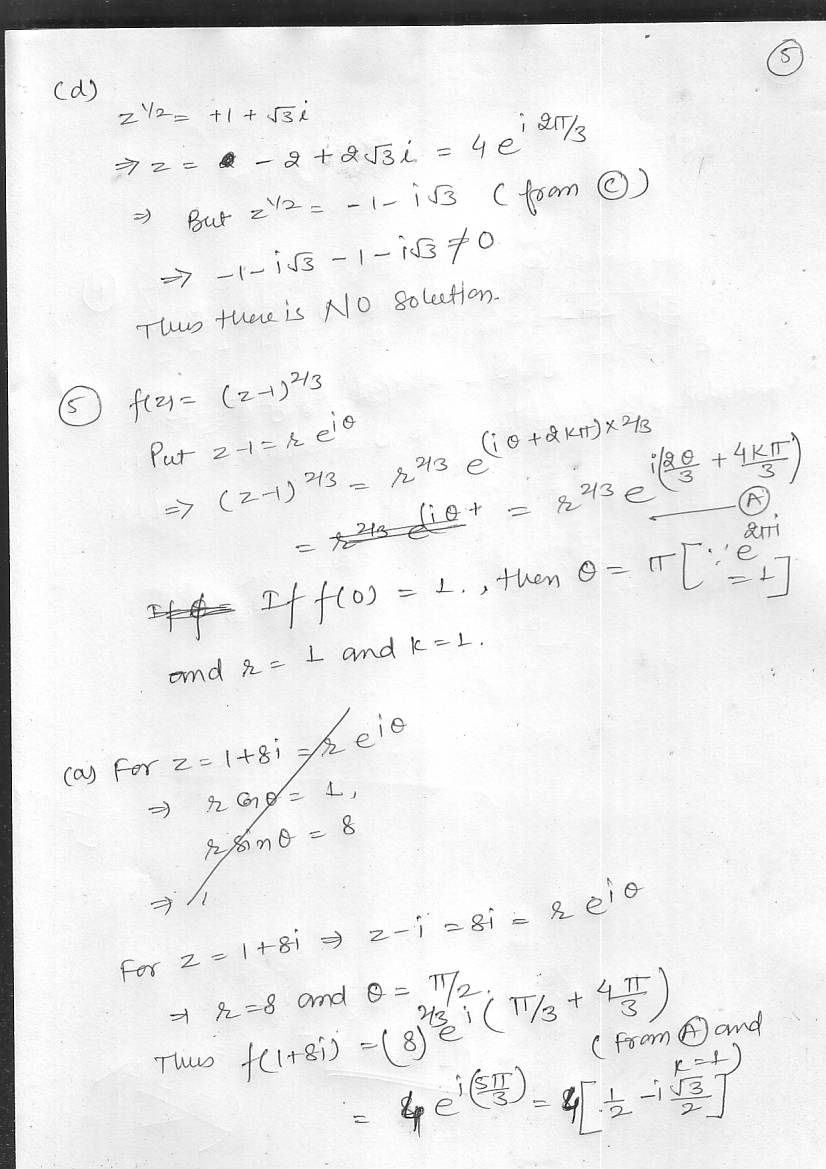 ⑤
(d)
z^{1/2} = +1 + √3 i
⇒ z = - 2 + 2√3 i = 4 e^{i 2π/3}
⇒ But z^{1/2} = -1 - i√3 ( from Ⓒ )
⇒ -1 - i√3 - 1 - i√3 ≠ 0
Thus there is NO solution.
⑤ f(z) = (z-1)^{2/3}
Put z-1 = r e^{iθ}
⇒ (z-1)^{2/3} = r^{2/3} e^{(iθ + 2kπ) × 2/3}
= r^{2/3} e^{(iθ + = r^{2/3} e^{i(2θ/3 + 4kπ/3)}
Ⓐ
If f(0) = 1., then θ = π [∵ e^{2πi} = 1]
and r = 1 and k = 1.
(a) For z = 1+8i = r e^{iθ}
⇒ r cosθ = 1,
r sinθ = 8
⇒
For z = 1+8i ⇒ z-i = 8i = r e^{iθ}
⇒ r = 8 and θ = π/2.
Thus f(1+8i) = (8)^{2/3} e^{i(π/3 + 4π/3)}
( from Ⓐ and k = 1)
= 4 e^{i(5π/3)} = 4[1/2 - i √3/2]